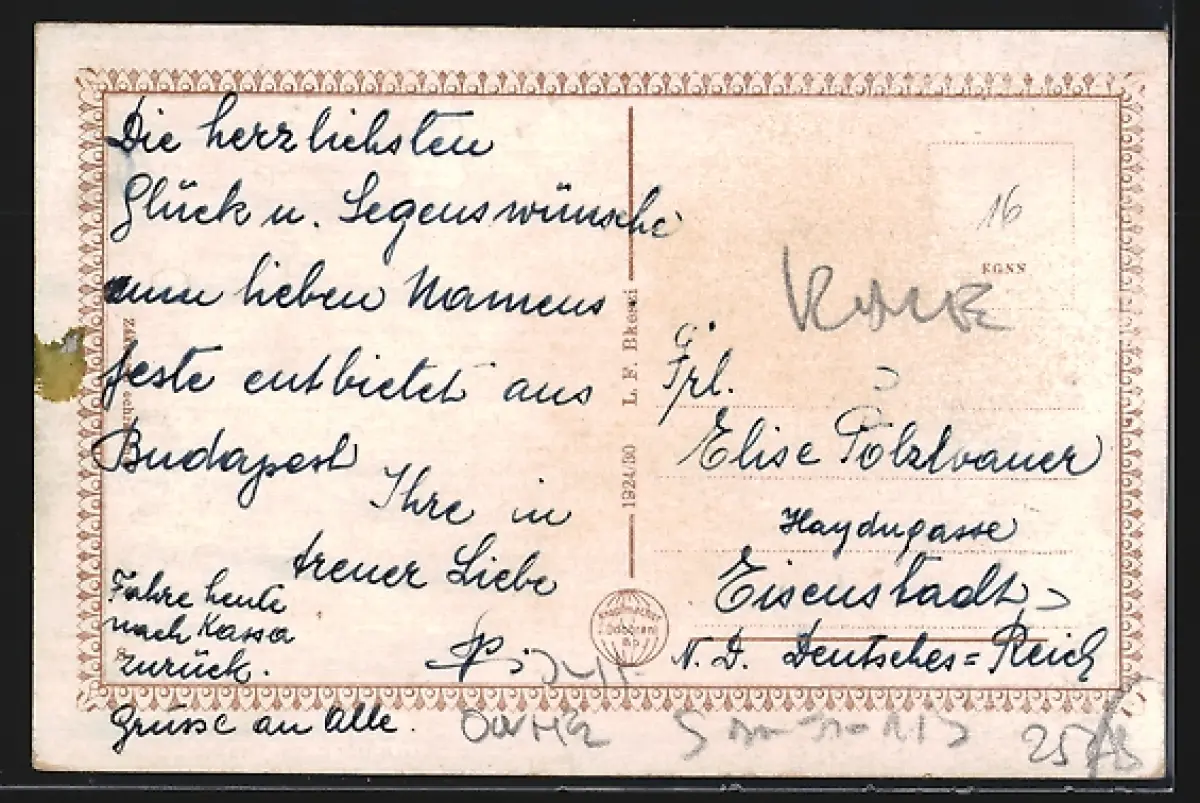 Die herzlichsten
Glück u. Segenswünsche
zum lieben Namens
feste entbietet aus
Budapest
Ihre in
treuer Liebe
Fahre heute
nach Kassa
zurück.
Grüsse an Alle.
L. F. Bkesci
1924/30
16
EGNN
Frl.
Elise Pölzlbauer
Haydngasse
Eisenstadt
N. D. Deutsches=Reich